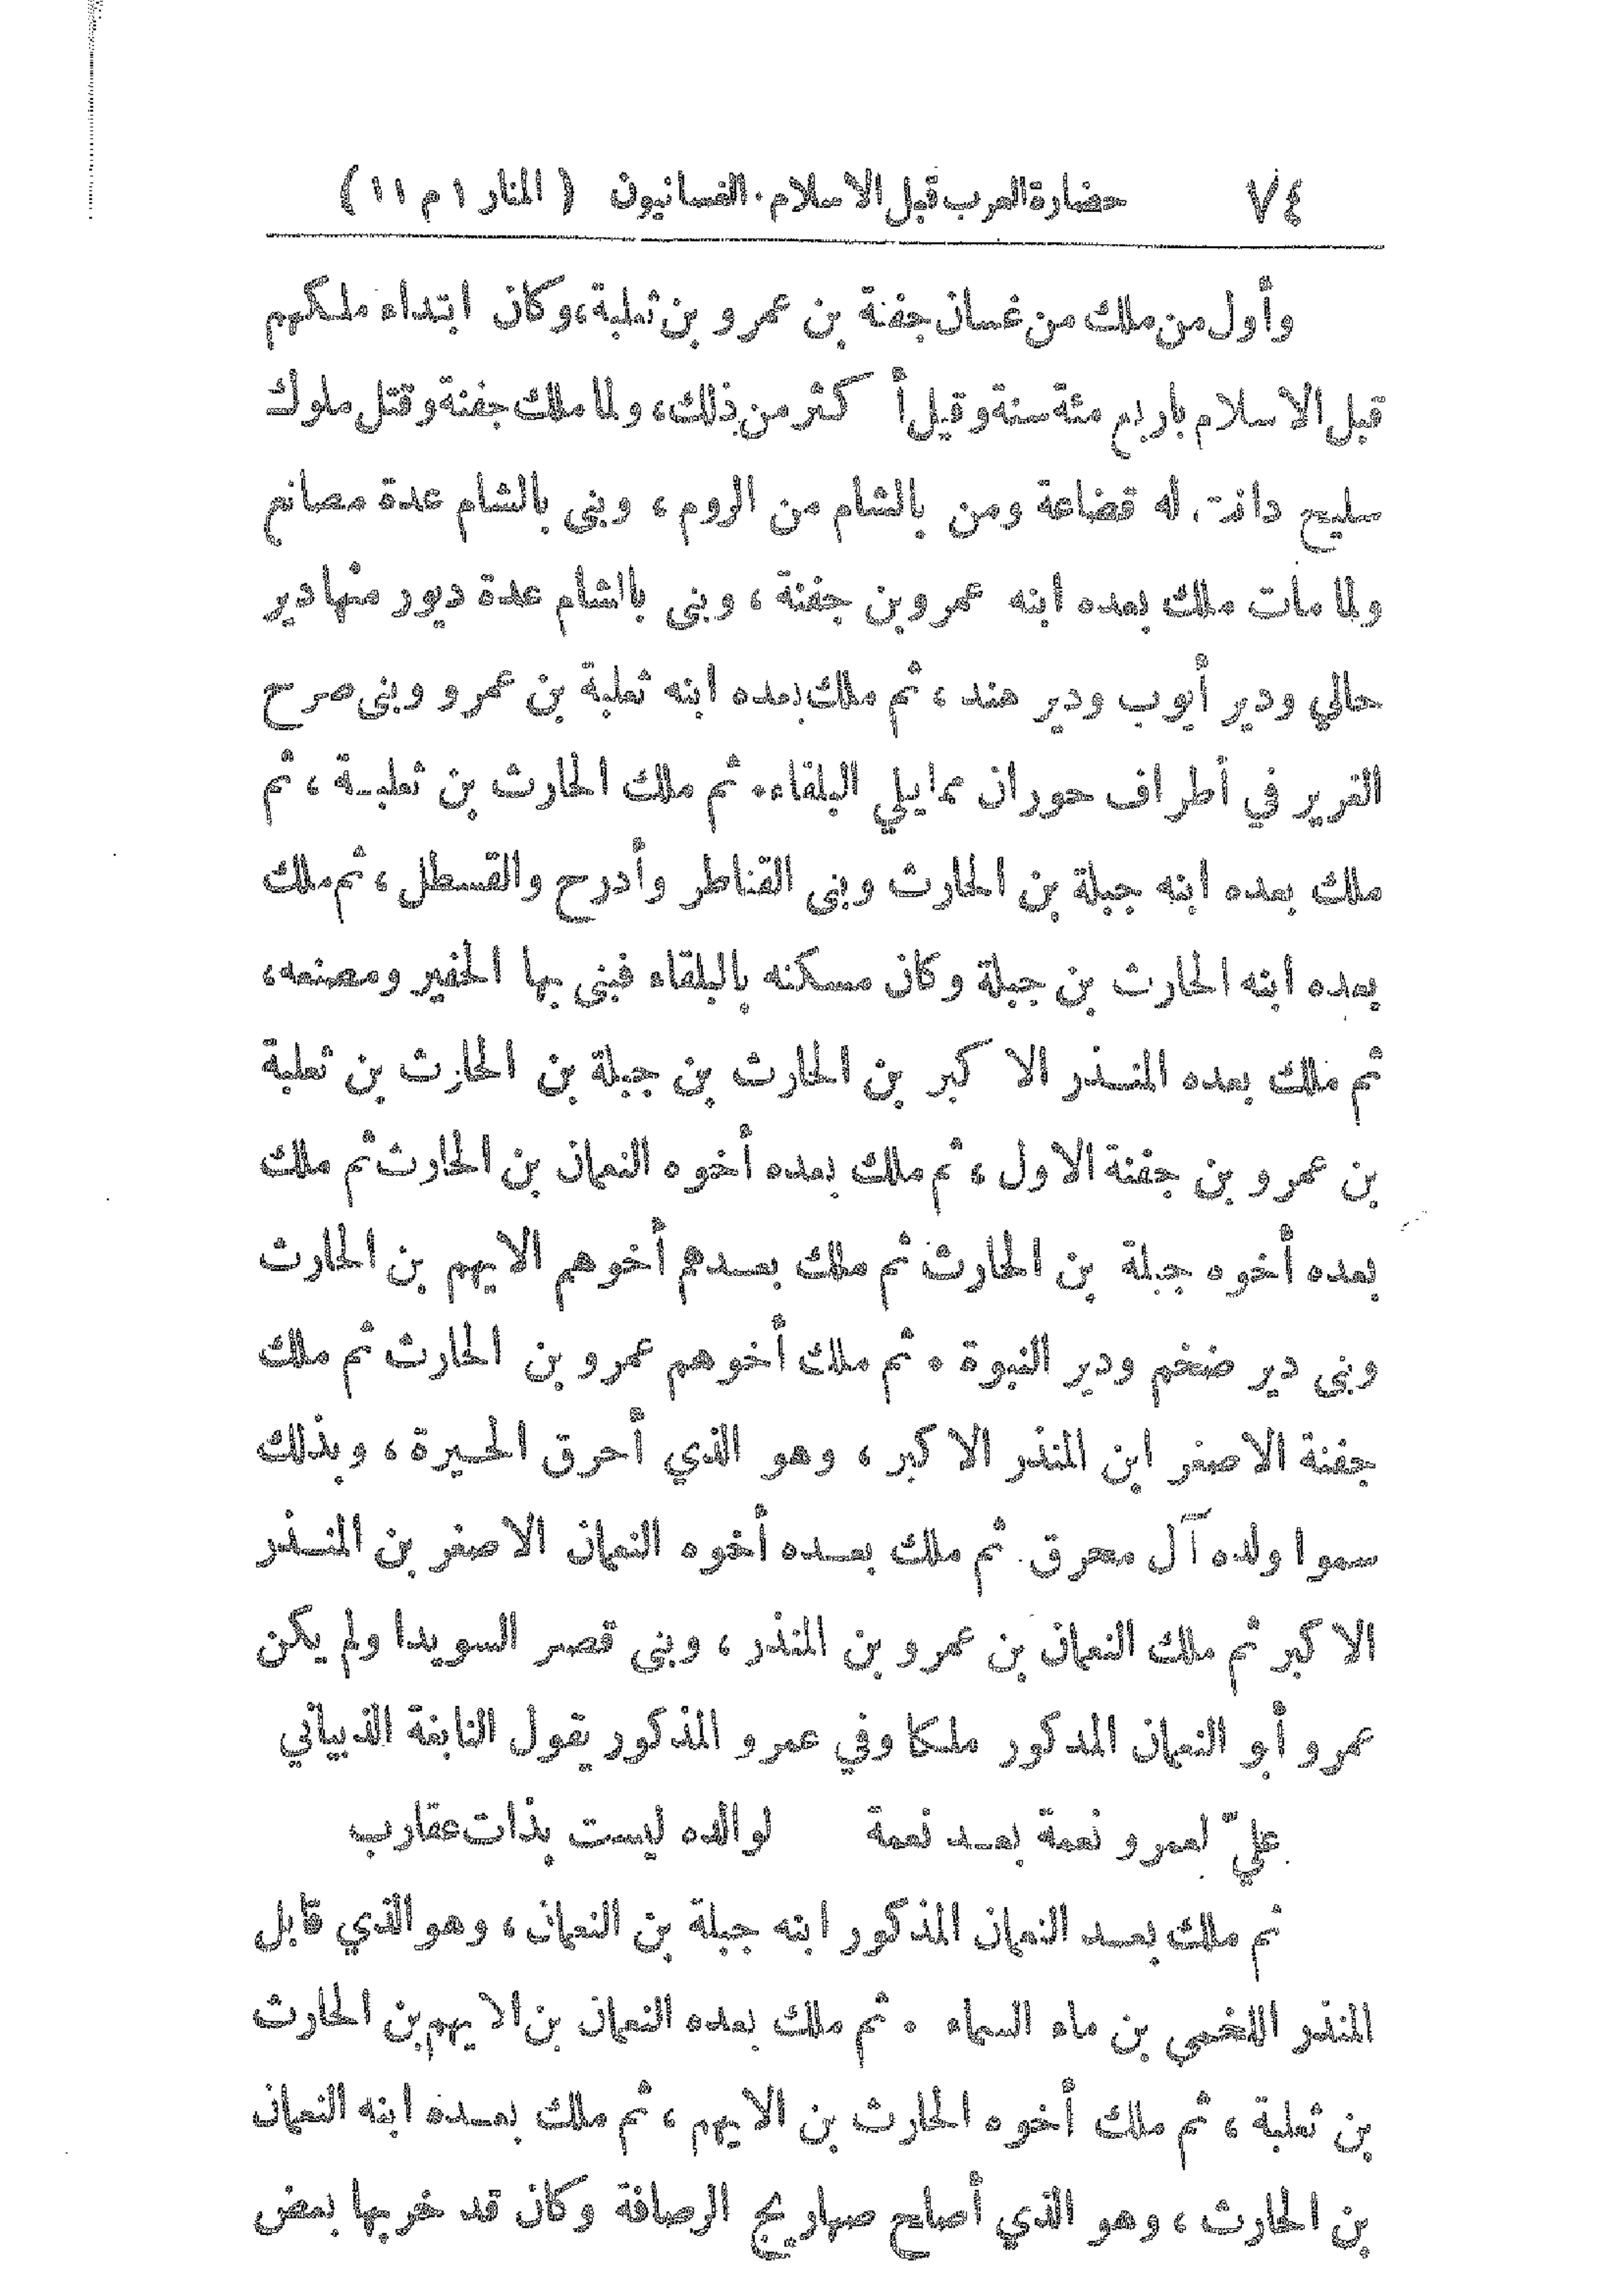 ٧٤ حضارة العرب قبل الاسلام . الغسانيون ( المنار ١ م ١١ )
وأول من ملك من غسان جفنة بن عمرو بن ثعلبة، وكان ابتداء ملكهم
قبل الاسلام باربع مئة سنة وقيل أكثر من ذلك، ولما ملك جفنة وقتل ملوك
سليح دانت له قضاعة ومن بالشام من الروم ، وبنى بالشام عدة مصانع
ولما مات ملك بعده ابنه عمرو بن جفنة ، وبنى بالشام عدة ديور منها دير
حالي ودير أيوب ودير هند ، ثم ملك بعده ابنه ثعلبة بن عمرو وبنى صرح
الغرير في أطراف حوران مما يلي البلقاء . ثم ملك الحارث بن ثعلبـة ، ثم
ملك بعده ابنه جبلة بن الحارث وبنى القناطر وأدرح والقسطل ، ثم ملك
بعده ابنه الحارث بن جبلة وكان مسكنه بالبلقاء فبنى بها الحفير ومصنعه،
ثم ملك بعده المنـذر الاكبر بن الحارث بن جبلة بن الحارث بن ثعلبة
بن عمرو بن جفنة الاول ، ثم ملك بعده أخوه النعمان بن الحارث ثم ملك
بعده أخوه جبلة بن الحارث ثم ملك بعـدهم أخوهم الايهم بن الحارث
وبنى دير ضخم ودير النبوة . ثم ملك أخوهم عمرو بن الحارث ثم ملك
جفنة الاصغر ابن المنذر الاكبر ، وهو الذي أحرق الحـيرة ، وبذلك
سموا ولده آل محرق . ثم ملك بعـده أخوه النعمان الاصغر بن المنـذر
الاكبر ثم ملك النعمان بن عمرو بن المنذر ، وبنى قصر السويدا ولم يكن
عمرو أبو النعمان المدكور ملكا وفي عمرو المذكور يقول النابغة الذبياني
عليّ لعمرو نعمة بعـد نعمة لوالده ليست بذات عقارب
ثم ملك بعـد النعمان المذكور ابنه جبلة بن النعمان ، وهو الذي قابل
المنذر اللخمي بن ماء السماء . ثم ملك بعده النعمان بن الايهم بن الحارث
بن ثعلبة ، ثم ملك أخوه الحارث بن الايهم ، ثم ملك بعـده ابنه النعمان
بن الحارث ، وهو الذي أصلح صهاريج الرصافة وكان قد خربها بعض